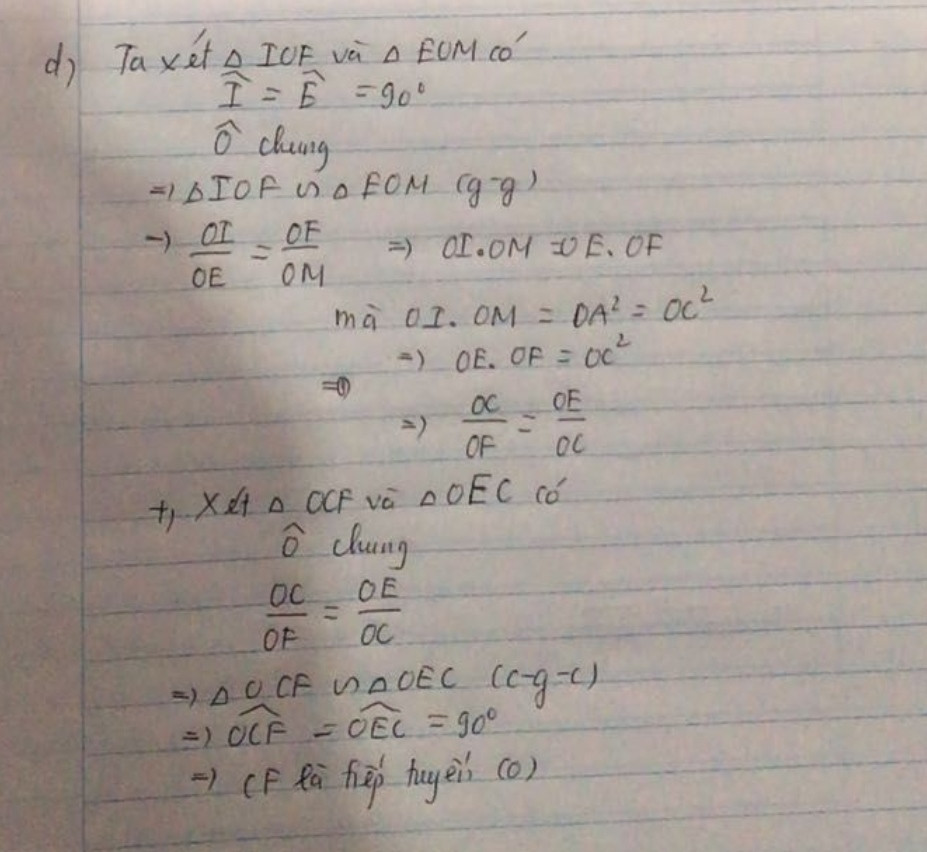 d) Ta xét Δ IOF và Δ EOM có
Î = Ê = 90°
Ô chung
=> Δ IOF ∽ Δ EOM (g-g)
=> OI/OE = OF/OM => OI.OM = OE.OF
mà OI.OM = OA² = OC²
=> OE.OF = OC²
=> OC/OF = OE/OC
+, Xét Δ OCF và Δ OEC có
Ô chung
OC/OF = OE/OC
=> Δ OCF ∽ Δ OEC (c-g-c)
=> \widehat{OCF} = \widehat{OEC} = 90°
=> CF là tiếp tuyến (O)